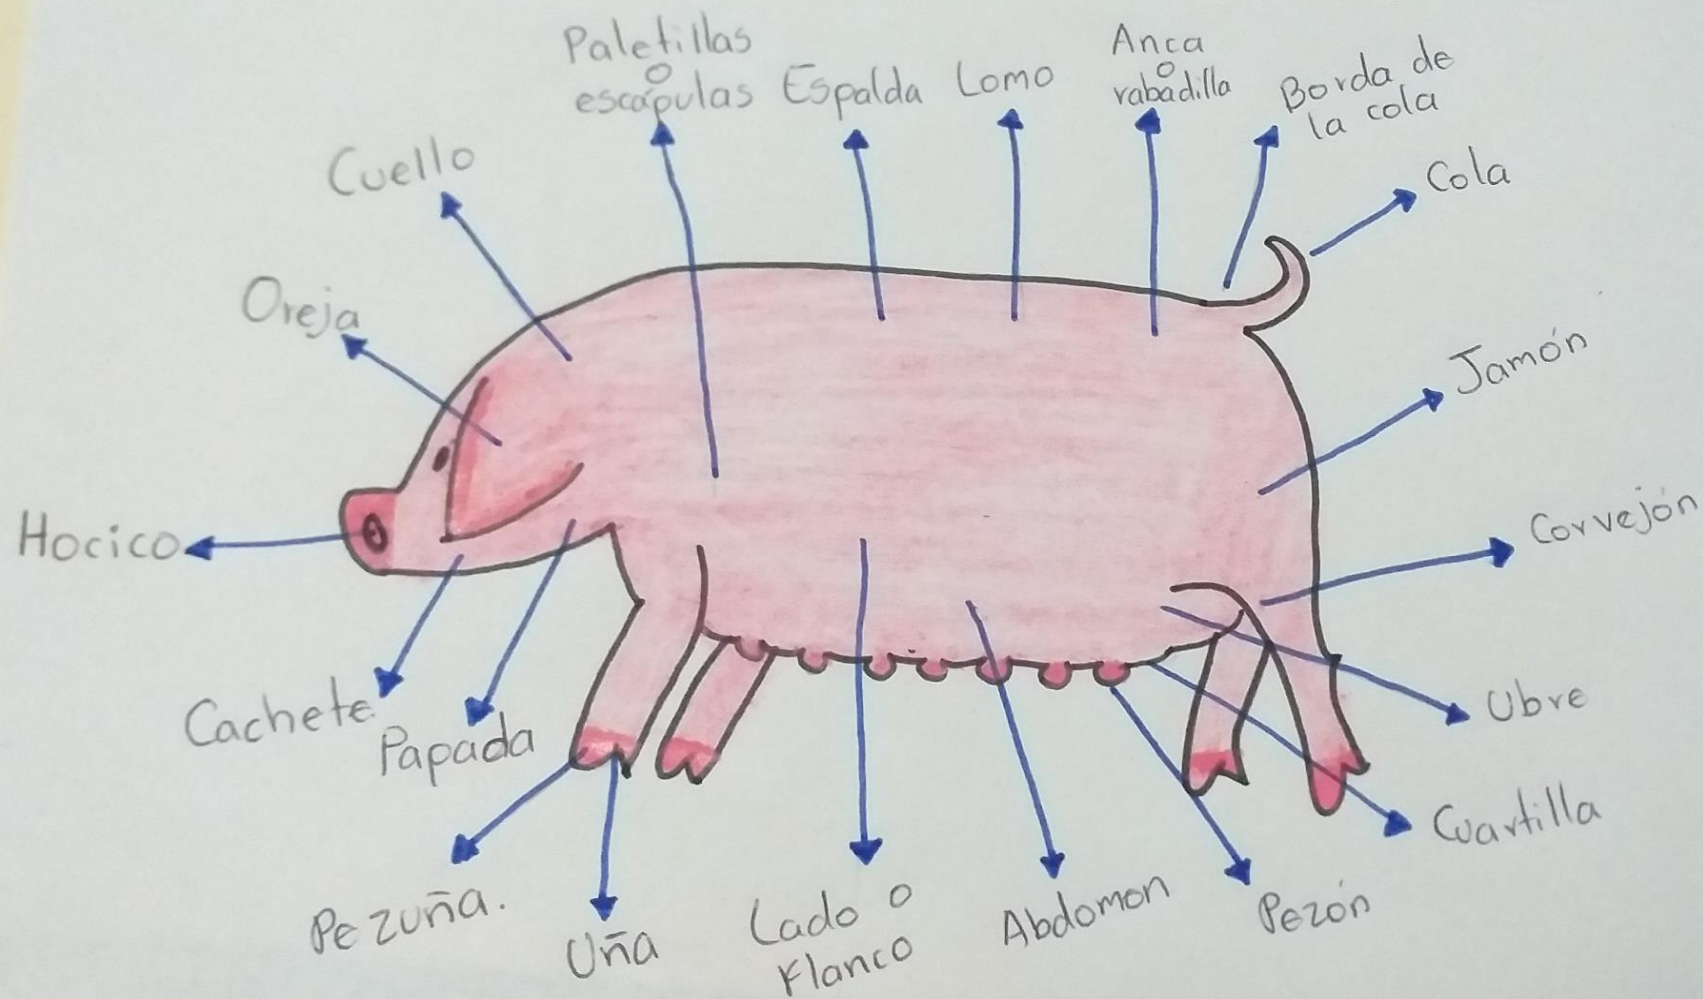 Paletillas
o
escápulas
Espalda
Lomo
Anca
o
rabadilla
Borda de
la cola
Cola
Cuello
Oreja
Jamón
Hocico
Corvejón
Cachete.
Papada
Ubre
Cuartilla
Pezuña.
Uña
Lado o
Flanco
Abdomon
Pezón